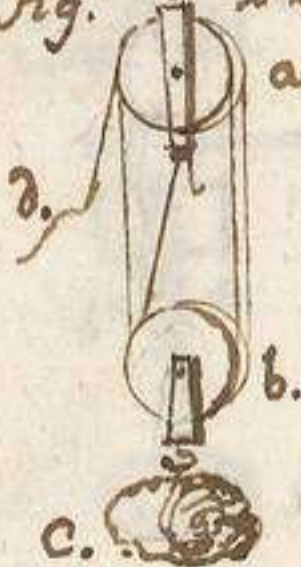 Fig.
a
d.
b.
c.